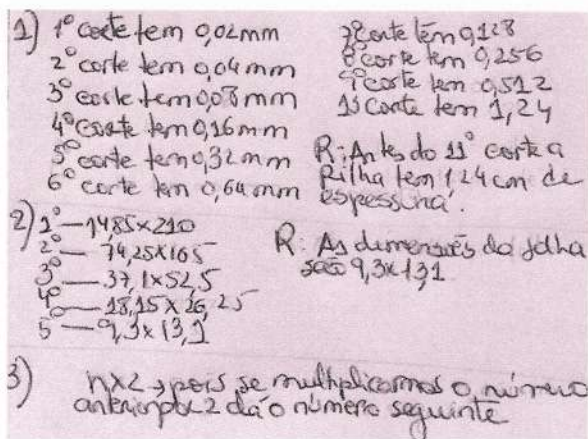 1) 1º corte tem 0,02mm
2º corte tem 0,04 mm
3º corte tem 0,08 mm
4º corte tem 0,16 mm
5º corte tem 0,32 mm
6º corte tem 0,64 mm
7º corte têm 0,128
8º corte tem 0,256
9º corte tem 0,512
10 corte tem 1,24
R: Antes do 11º corte a
Pilha tem 1,24 cm de
espessura.
2) 1º — 148,5 x 210
2º — 74,25 x 105
3º — 37,1 x 52,5
4º — 18,15 x 26,25
5 — 9,3 x 13,1
R: As dimensões da folha
são 9,3 x 13,1
3) n x 2 → pois se multiplicarmos o número
anterior por 2 dá o número seguinte